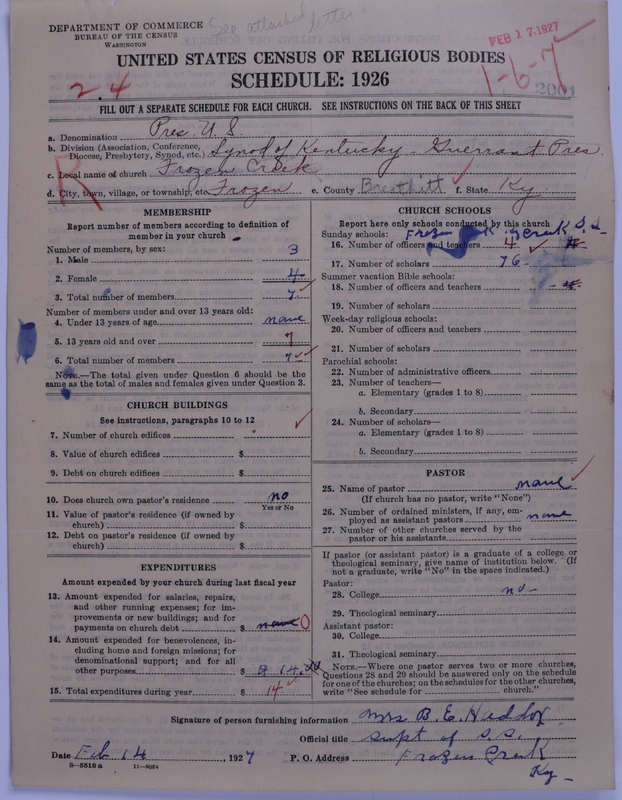 DEPARTMENT OF COMMERCE
BUREAU OF THE CENSUS
WASHINGTON
See attached letter
FEB 17 1927
UNITED STATES CENSUS OF RELIGIOUS BODIES
SCHEDULE: 1926
1-6-7
2001
2.4
FILL OUT A SEPARATE SCHEDULE FOR EACH CHURCH. SEE INSTRUCTIONS ON THE BACK OF THIS SHEET
a. Denomination Pres. U. S.
b. Division (Association, Conference, Diocese, Presbytery, Synod, etc.) Synod of Kentucky - Guerrant Pres.
c. Local name of church Frozen Creek
d. City, town, village, or township, etc. Frozen e. County Breathitt f. State Ky.
MEMBERSHIP
Report number of members according to definition of
member in your church
Number of members, by sex:
1. Male 3
2. Female 4
3. Total number of members 7
Number of members under and over 13 years old:
4. Under 13 years of age none
5. 13 years old and over 7
6. Total number of members 7
NOTE.—The total given under Question 6 should be the
same as the total of males and females given under Question 3.
CHURCH BUILDINGS
See instructions, paragraphs 10 to 12
7. Number of church edifices
8. Value of church edifices $
9. Debt on church edifices $
10. Does church own pastor's residence no
Yes or No
11. Value of pastor's residence (if owned by
church) $
12. Debt on pastor's residence (if owned by
church) $
EXPENDITURES
Amount expended by your church during last fiscal year
13. Amount expended for salaries, repairs,
and other running expenses; for im-
provements or new buildings; and for
payments on church debt $ none 0
14. Amount expended for benevolences, in-
cluding home and foreign missions; for
denominational support; and for all
other purposes $ 14.00
15. Total expenditures during year $ 14
CHURCH SCHOOLS
Report here only schools conducted by this church
Sunday schools: Frozen Creek S. S.
16. Number of officers and teachers 4
17. Number of scholars 76
Summer vacation Bible schools:
18. Number of officers and teachers
19. Number of scholars
Week-day religious schools:
20. Number of officers and teachers
21. Number of scholars
Parochial schools:
22. Number of administrative officers
23. Number of teachers—
a. Elementary (grades 1 to 8)
b. Secondary
24. Number of scholars—
a. Elementary (grades 1 to 8)
b. Secondary
PASTOR
25. Name of pastor none
(If church has no pastor, write "None")
26. Number of ordained ministers, if any, em-
ployed as assistant pastors none
27. Number of other churches served by the
pastor or his assistants
If pastor (or assistant pastor) is a graduate of a college or
theological seminary, give name of institution below. (If
not a graduate, write "No" in the space indicated.)
Pastor:
28. College no
29. Theological seminary
Assistant pastor:
30. College
31. Theological seminary
NOTE.—Where one pastor serves two or more churches,
Questions 28 and 29 should be answered only on the schedule
for one of the churches; on the schedules for the other churches,
write "See schedule for church."
Signature of person furnishing information Mrs B. E. Haddox
Official title supt of S.S.
Date Feb 14, 1927 P. O. Address Frozen Creek
Ky
8—5518 a 11—9064